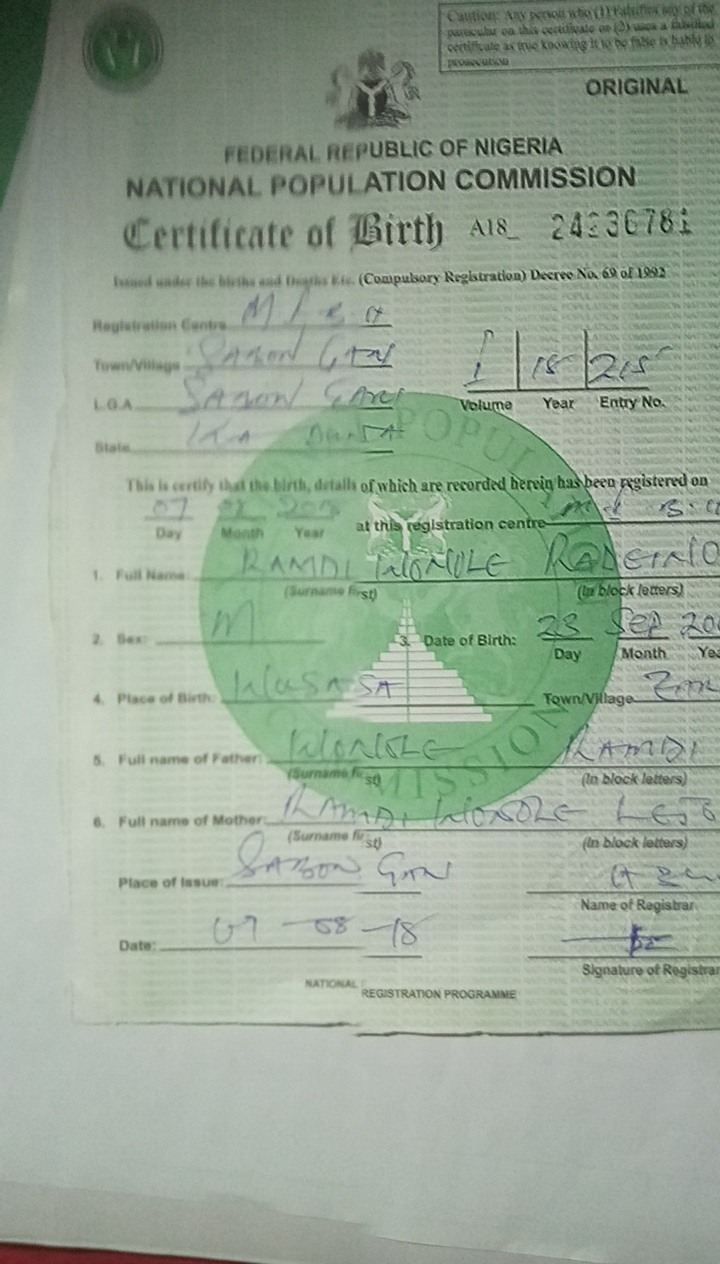 Caution: Any person who (1) falsifies any of the
particular on this certificate or (2) uses a falsified
certificate as true knowing it to be false is liable to
prosecution
ORIGINAL
FEDERAL REPUBLIC OF NIGERIA
NATIONAL POPULATION COMMISSION
Certificate of Birth A18_ 24236781
Issued under the births and Deaths Etc. (Compulsory Registration) Decree No. 69 of 1992
Registration Centre
Town/Village SABON GARI
L.G.A SABON GARI
18 215
Volume Year Entry No.
State KADUNA
This is certify that the birth, details of which are recorded herein has been registered on
07 08 2018 at this registration centre
Day Month Year
1. Full Name: RAMDI WONOLE
(Surname first) (In block letters)
2. Sex: M 3. Date of Birth: 23 SEP 20
Day Month Yea
4. Place of Birth: WUSASA Town/Village
5. Full name of Father: WONOLE RAMDI
(Surname first) (In block letters)
6. Full name of Mother: RAMDI WONOLE
(Surname first) (In block letters)
Place of Issue: SABON GARI
Name of Registrar
Date: 07-08-18
Signature of Registrar
NATIONAL REGISTRATION PROGRAMME